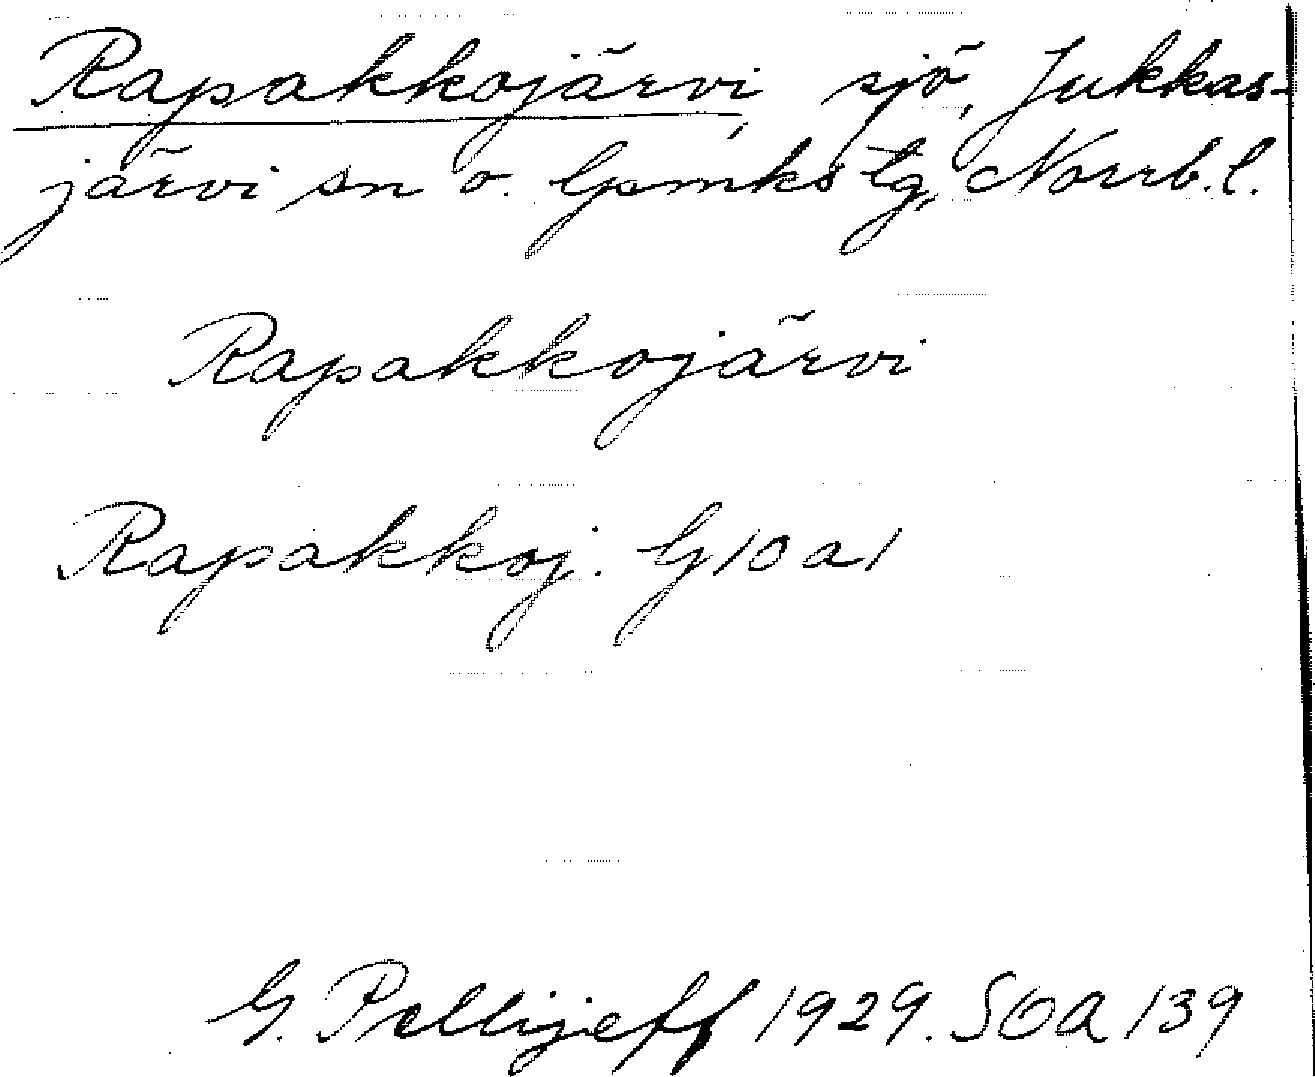 Rapakkojärvi, sjö, Jukkas-
järvi sn o. Gsmkstg, Norrb.l.
Rapakkojärvi
Rapakkoj. G10a1
G. Pellijeff 1929. SOA 139